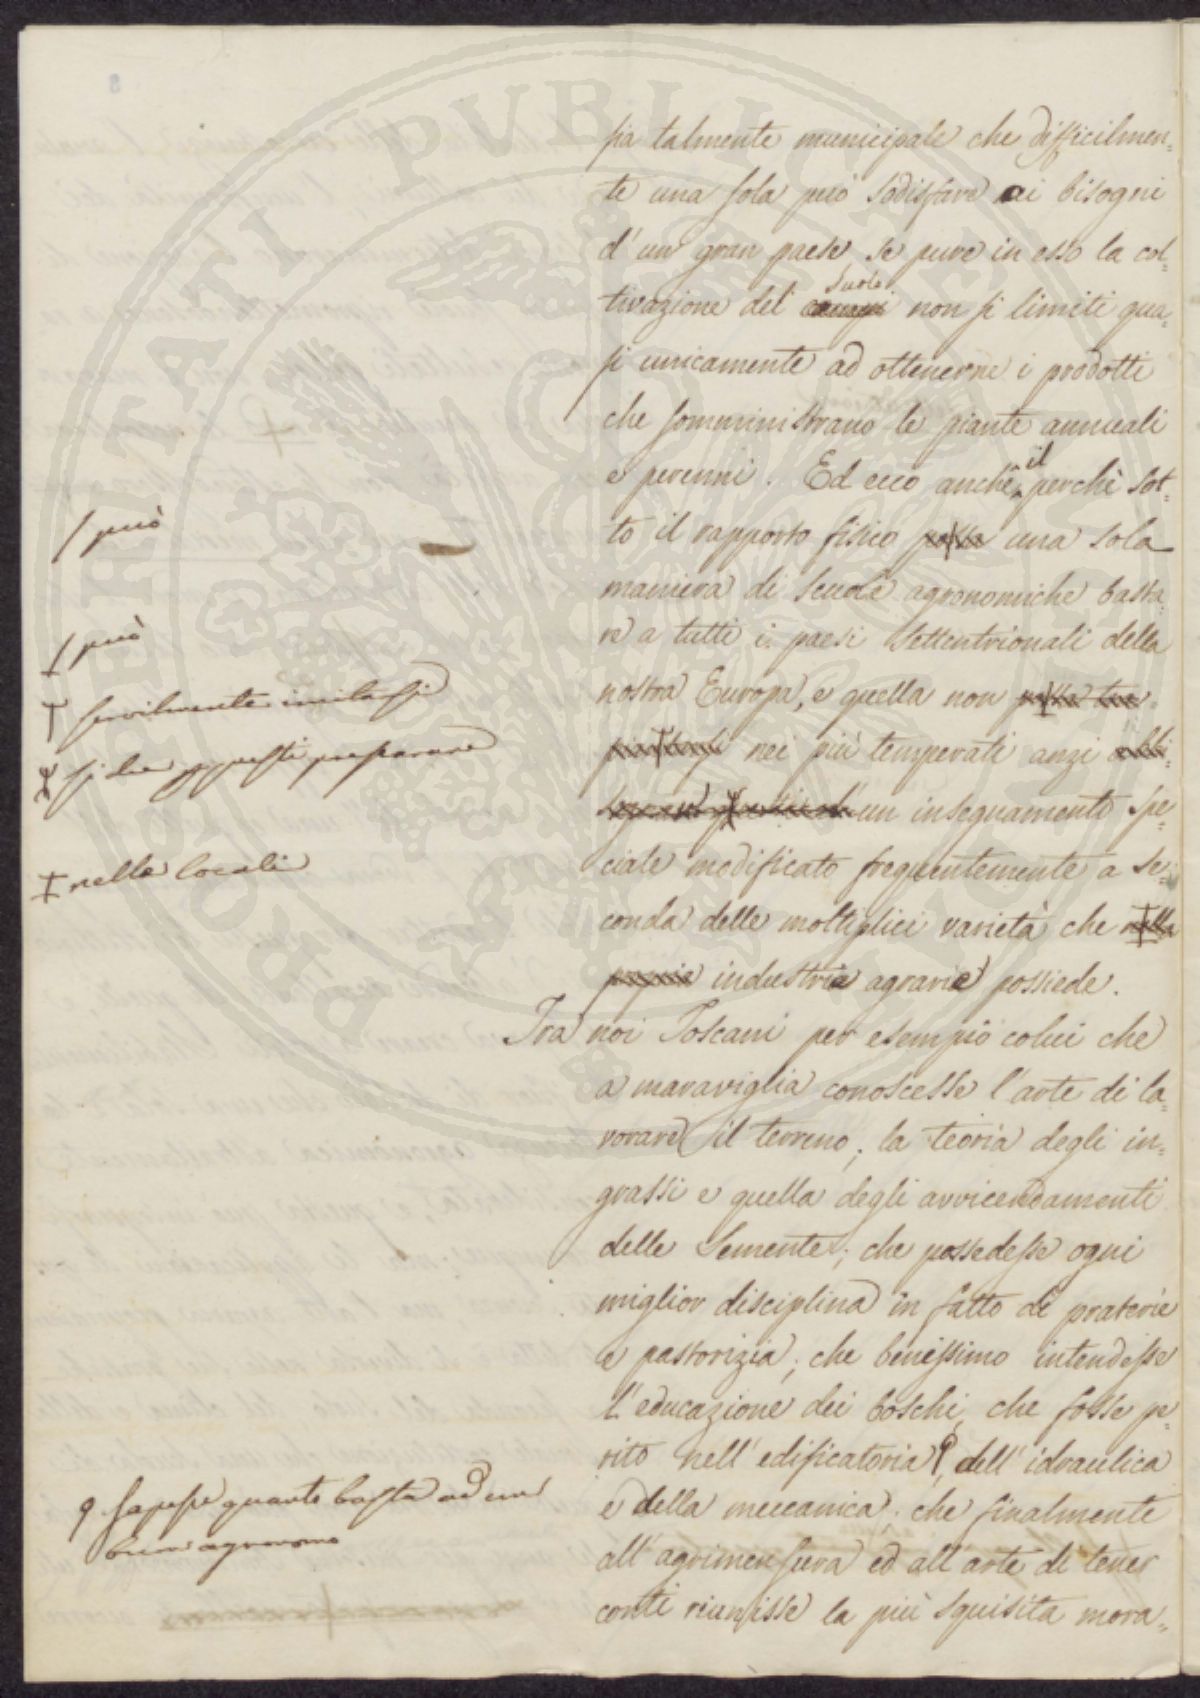 sia talmente municipale che difficilmen=
te una sola può sodisfare ai bisogni
d'un gran paese se pure in esso la col=
tivazione del campi suolo non si limiti qua=
si unicamente ad ottenerne i prodotti
che somministrano le piante annuali
e perenni. Ed ecco anche il perchè sot=
to il rapporto fisico possa una sola
/ può
maniera di scuole agronomiche basta=
re a tutti i paesi settentrionali della
ƚ può
nostra Europa, e quella non possa
Ŧ servilmente imitarsi
nei più temperati anzi
si dee questi preparare
un insegnamento spe=
ciale modificato frequentemente a se=
conda delle moltiplici varietà che nella
ǂ nelle locali
propria industria agraria possiede.
Tra noi Toscani per esempio colui che
a maraviglia conoscesse l'arte di la=
vorare il terreno; la teoria degli in=
grassi e quella degli avvicendamenti
delle Semente; che possedesse ogni
miglior disciplina in fatto di praterie
e pastorizia; che benissimo intendesse
l'educazione dei boschi, che fosse pe=
rito nell'edificatoria 9, dell'idraulica
e della meccanica; che finalmente
9 sapesse quanto basta ad un
buon agronomo
all'agrimensura ed all'arte di tener
conti riunisse la più squisita mora=
PROSPERITATI PUBLICAE AUGENDAE